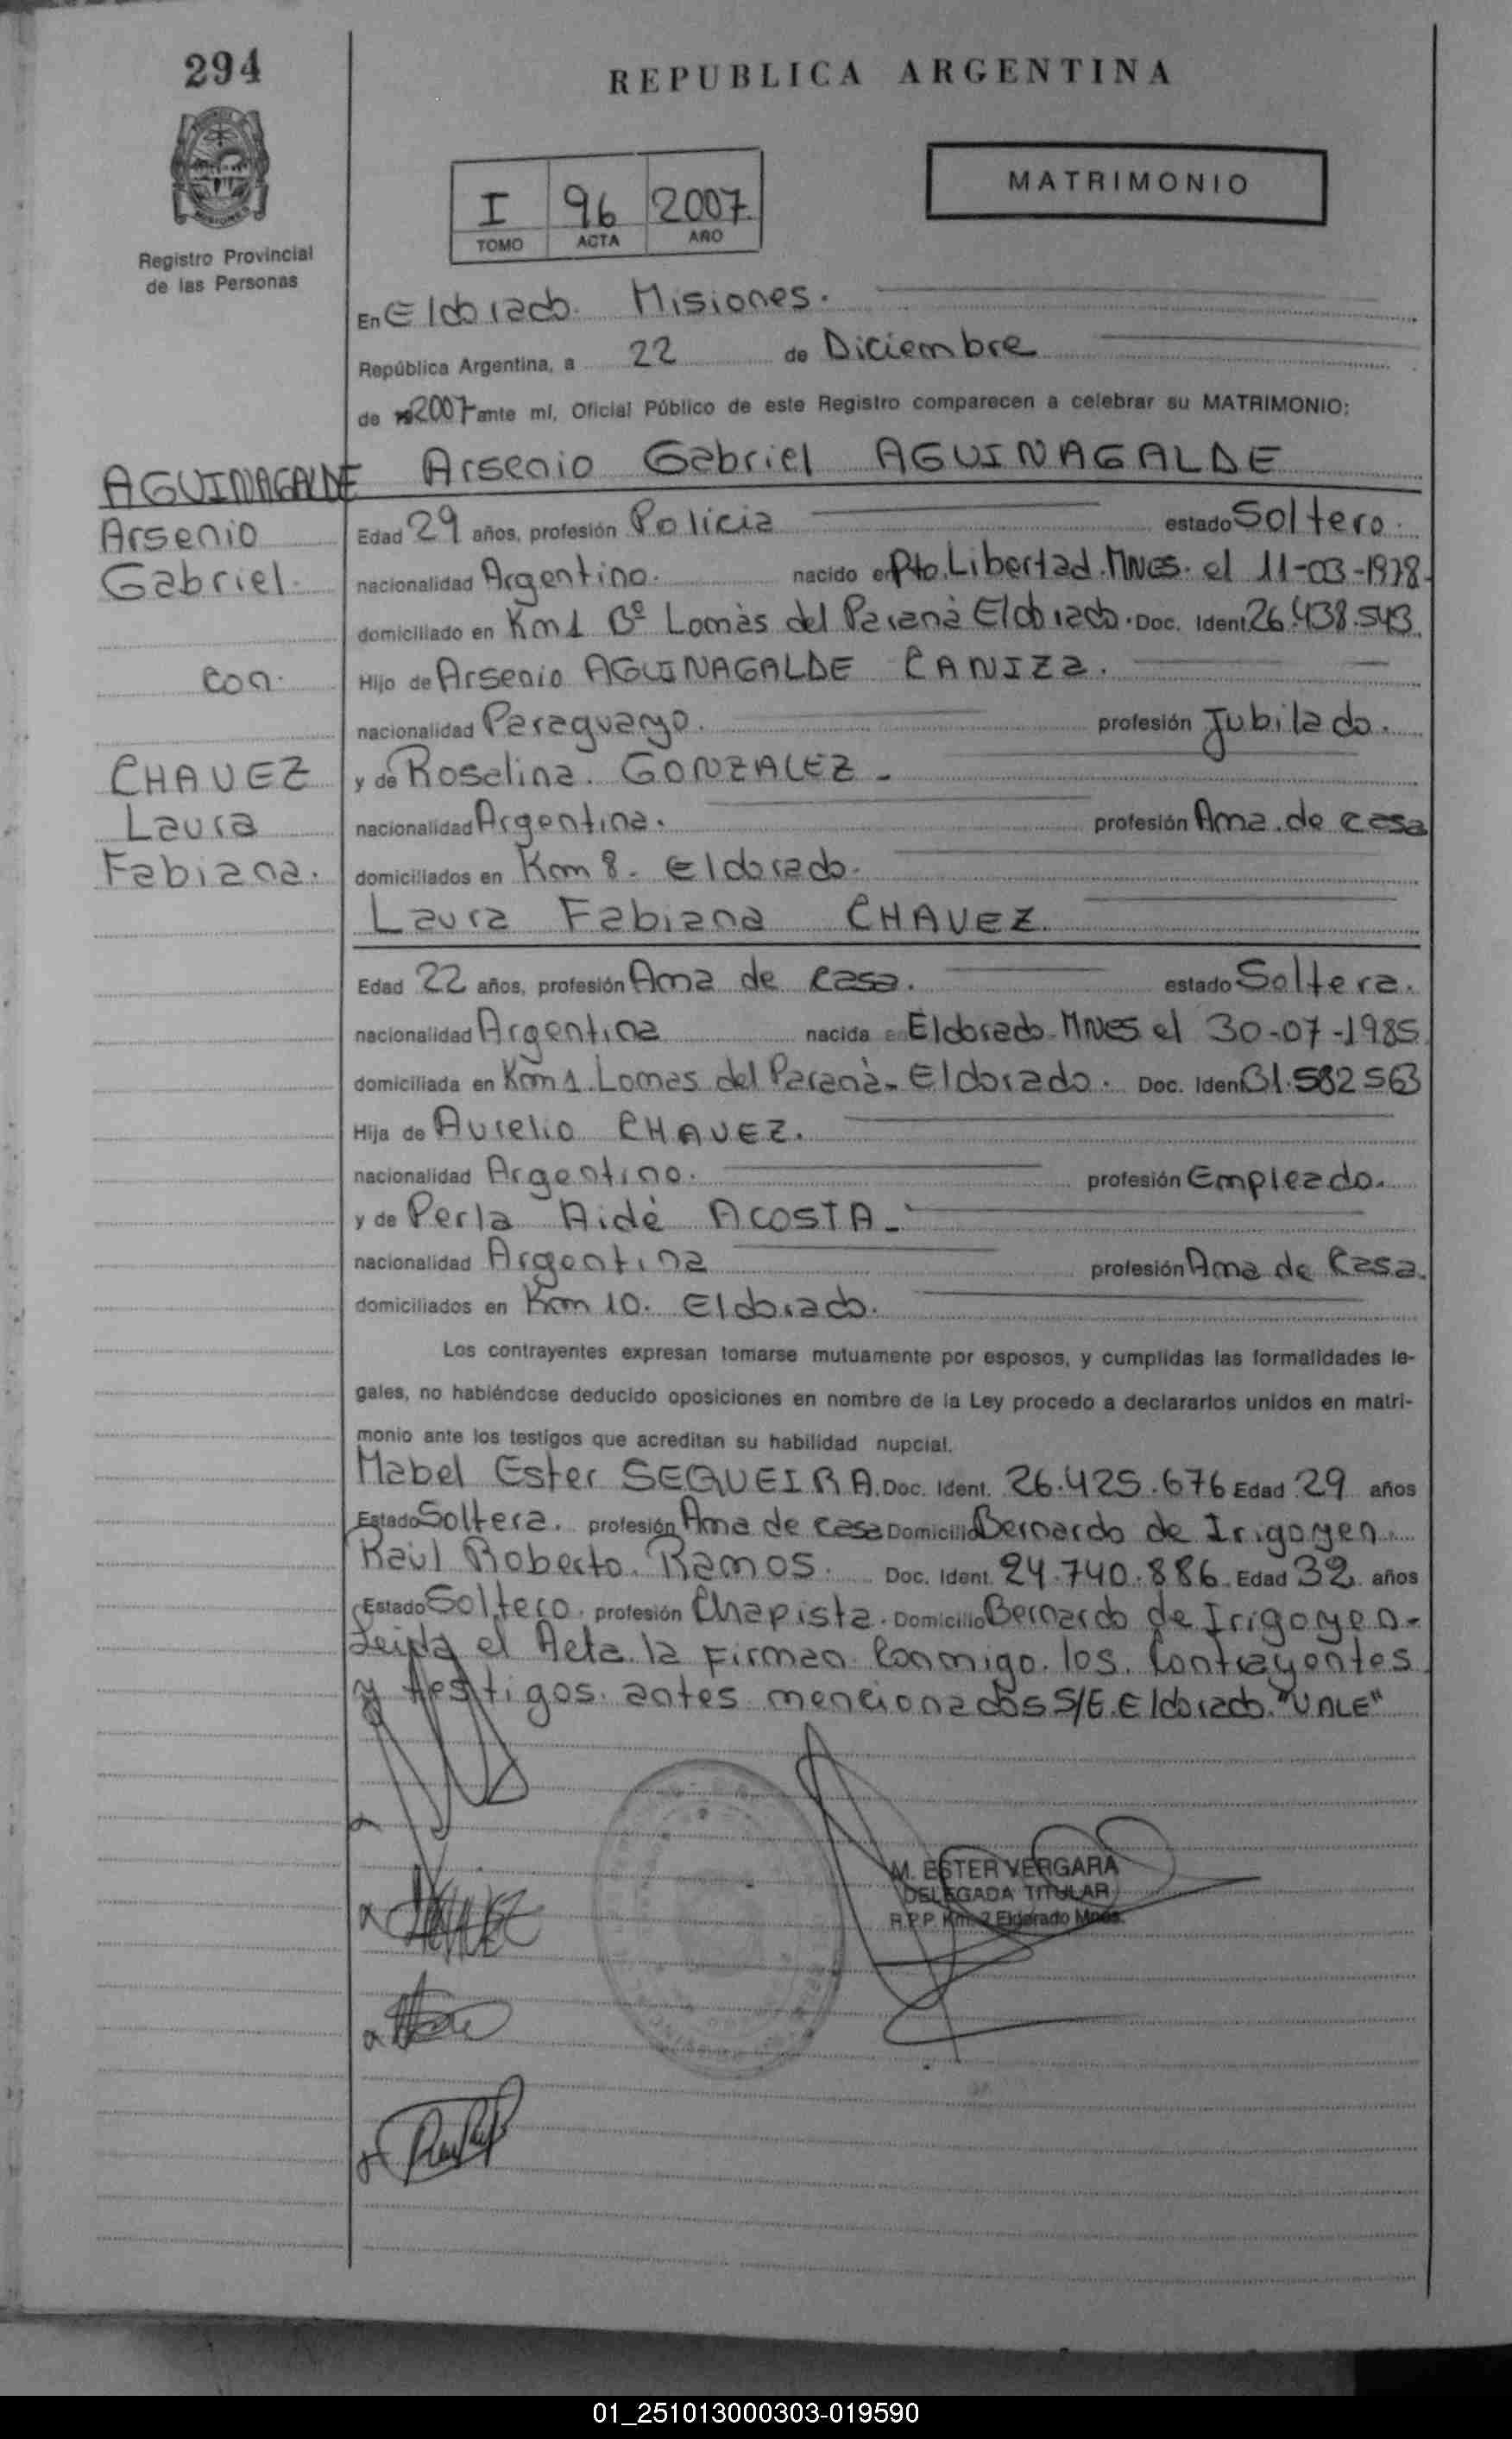 294
REPUBLICA ARGENTINA
MATRIMONIO
I 96 2007
TOMO ACTA AÑO
Registro Provincial
de las Personas
En Eldorado. Misiones.
República Argentina, a 22 de Diciembre
de 2007 ante mí, Oficial Público de este Registro comparecen a celebrar su MATRIMONIO:
AGUINAGALDE
Arsenio
Gabriel.
con.
CHAVEZ
Laura
Fabiana.
Arsenio Gabriel AGUINAGALDE
Edad 29 años, profesión Policia estado Soltero.
nacionalidad Argentino. nacido en Pto. Libertad. Mnes. el 11-03-1978.
domiciliado en Km 1 Bº Lomàs del Paranà Eldorado. Doc. Ident. 26.438.543.
Hijo de Arsenio AGUINAGALDE CANIZa.
nacionalidad Paraguayo. profesión Jubilado.
y de Roselina. GONZALEZ -
nacionalidad Argentina. profesión Ama. de casa
domiciliados en Km 8. Eldorado.
Laura Fabiana CHAVEZ.
Edad 22 años, profesión Ama de casa. estado Soltera.
nacionalidad Argentina nacida en Eldorado Mnes el 30-07-1985.
domiciliada en Km 1. Lomas del Paranà - Eldorado. Doc. Iden 31.582563
Hija de Aurelio CHAVEZ.
nacionalidad Argentino. profesión Empleado.
y de Perla Aidè ACOSTA -
nacionalidad Argentina profesión Ama de Casa.
domiciliados en Km 10. Eldorado.
Los contrayentes expresan tomarse mutuamente por esposos, y cumplidas las formalidades le-
gales, no habiéndose deducido oposiciones en nombre de la Ley procedo a declararlos unidos en matri-
monio ante los testigos que acreditan su habilidad nupcial.
Mabel Ester SEQUEIRA. Doc. Ident. 26.425.676 Edad 29 años
Estado Soltera. profesión Ama de casa Domicilio Bernardo de Irigoyen.
Raùl Roberto. Ramos. Doc. Ident. 24.740.886. Edad 32 años
Estado Soltero. profesión Chapista. Domicilio Bernardo de Irigoyen-
Leida el Acta la Firman Conmigo. los. Contrayentes
y testigos antes mencionados S/E. Eldorado. "VALE"
M. ESTER VERGARA
DELEGADA TITULAR
R.P.P. Km. 2 Eldorado Mnes.
01_251013000303-019590